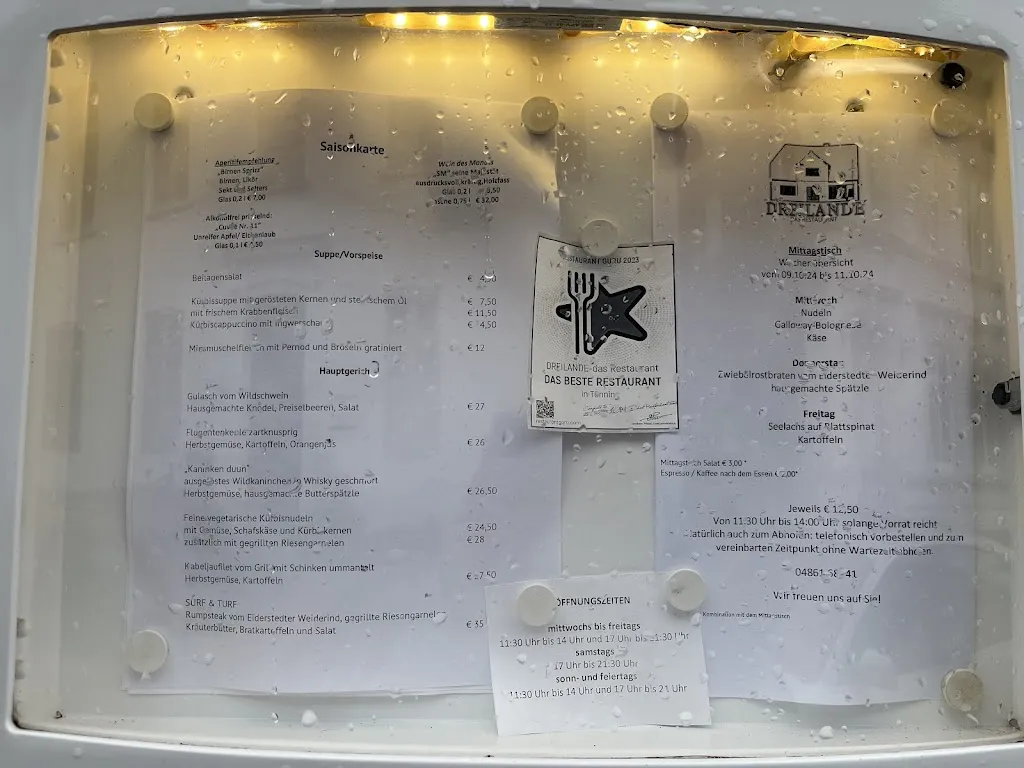 Saisonkarte
Aperitifempfehlung
„Birnen Spritz"
Birnen, Likör
Sekt und Selters
Glas 0,2 l € 7,00
Alkoholfrei prickelnd:
„Cuvée Nr. 11"
Unreifer Apfel/ Eichenlaub
Glas 0,1 l €
Wein des Monats
„SM" seine Majestät
ausdrucksvoll, kräftig, Holzfass
Glas 0,2 l
0,75 l € 32,00
Suppe/Vorspeise
Beilagensalat €
Kürbissuppe mit gerösteten Kernen und steirischem Öl € 7,50
mit frischem Krabbenfleisch € 11,50
Kürbiscappuccino mit Ingwerschaum € 4,50
Miesmuschelfleisch mit Pernod und Bröseln gratiniert € 12
Hauptgericht
Gulasch vom Wildschwein
Hausgemachte Knödel, Preiselbeeren, Salat € 27
Flugentenkeule zartknusprig
Herbstgemüse, Kartoffeln, Orangenjus € 26
„Kaninken duun"
ausgelöstes Wildkaninchen in Whisky geschmort
Herbstgemüse, hausgemachte Butterspätzle € 26,50
Feine vegetarische Kürbisnudeln
mit Gemüse, Schafskäse und Kürbiskernen € 24,50
zusätzlich mit gegrillten Riesengarnelen € 28
Kabeljaufilet vom Grill mit Schinken ummantelt
Herbstgemüse, Kartoffeln € 27,50
SURF & TURF
Rumpsteak vom Eiderstedter Weiderind, gegrillte Riesengarnelen
Kräuterbutter, Bratkartoffeln und Salat € 35
RESTAURANT GURU 2023
DREILANDE-das Restaurant
DAS BESTE RESTAURANT
in Tönning
ÖFFNUNGSZEITEN
mittwochs bis freitags
11:30 Uhr bis 14 Uhr und 17 Uhr bis 21:30 Uhr
samstags
17 Uhr bis 21:30 Uhr
sonn- und feiertags
11:30 Uhr bis 14 Uhr und 17 Uhr bis 21 Uhr
DREILANDE
DAS RESTAURANT
Mittagstisch
Wochenübersicht
vom 09.10.24 bis 11.10.24
Mittwoch
Nudeln
Galloway-Bolognese
Käse
Donnerstag
Zwiebelrostbraten vom Eiderstedter Weiderind
hausgemachte Spätzle
Freitag
Seelachs auf Blattspinat
Kartoffeln
Mittagstisch Salat € 3,00 *
Espresso / Kaffee nach dem Essen € 2,00*
Jeweils € 12,50
Von 11:30 Uhr bis 14:00 Uhr, solange Vorrat reicht
Natürlich auch zum Abholen: telefonisch vorbestellen und zum
vereinbarten Zeitpunkt ohne Wartezeit abholen.
04861
Wir freuen uns auf Sie!
Kombination mit dem Mittagstisch